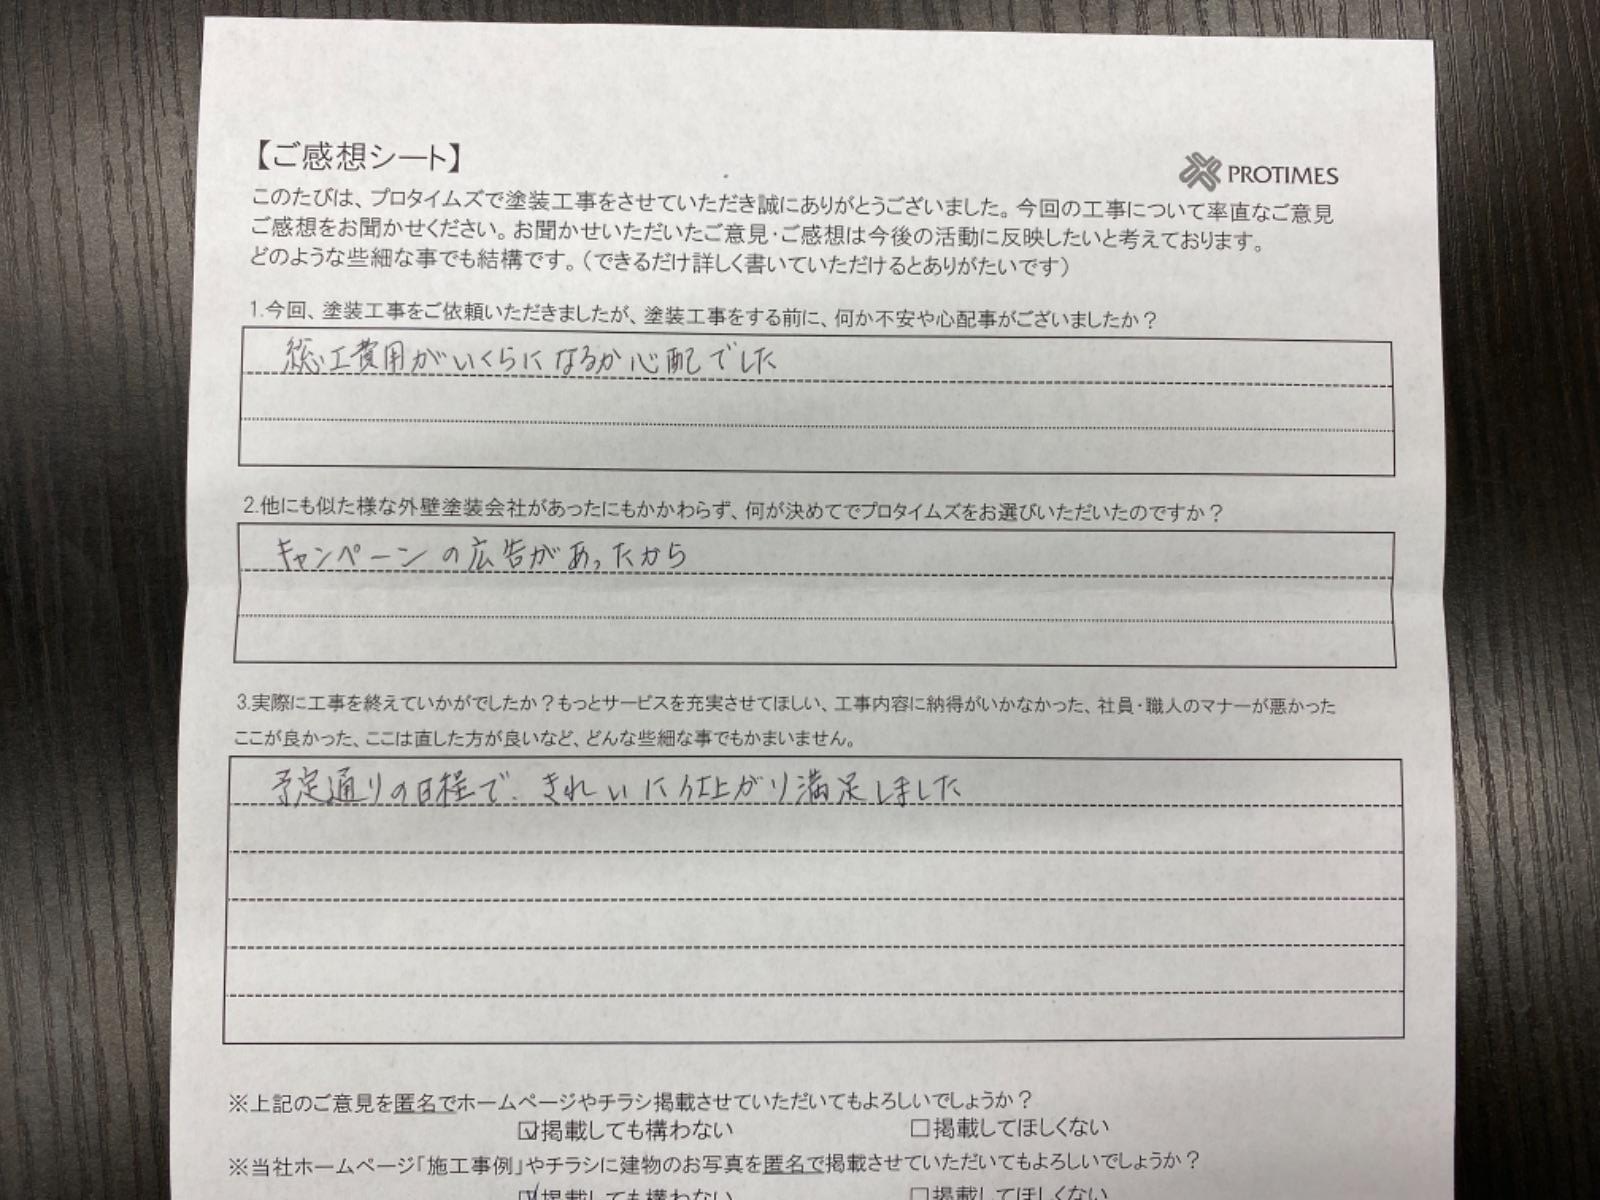 【ご感想シート】
PROTIMES
このたびは、プロタイムズで塗装工事をさせていただき誠にありがとうございました。今回の工事について率直なご意見
ご感想をお聞かせください。お聞かせいただいたご意見・ご感想は今後の活動に反映したいと考えております。
どのような些細な事でも結構です。（できるだけ詳しく書いていただけるとありがたいです）
1.今回、塗装工事をご依頼いただきましたが、塗装工事をする前に、何か不安や心配事がございましたか？
総工費用がいくらになるか心配でした
2.他にも似た様な外壁塗装会社があったにもかかわらず、何が決めてでプロタイムズをお選びいただいたのですか？
キャンペーンの広告があったから
3.実際に工事を終えていかがでしたか？もっとサービスを充実させてほしい、工事内容に納得がいかなかった、社員・職人のマナーが悪かった
ここが良かった、ここは直した方が良いなど、どんな些細な事でもかまいません。
予定通りの日程で、きれいに仕上がり満足しました
※上記のご意見を匿名でホームページやチラシ掲載させていただいてもよろしいでしょうか？
☑掲載しても構わない □掲載してほしくない
※当社ホームページ「施工事例」やチラシに建物のお写真を匿名で掲載させていただいてもよろしいでしょうか？
☑掲載しても構わない □掲載してほしくない